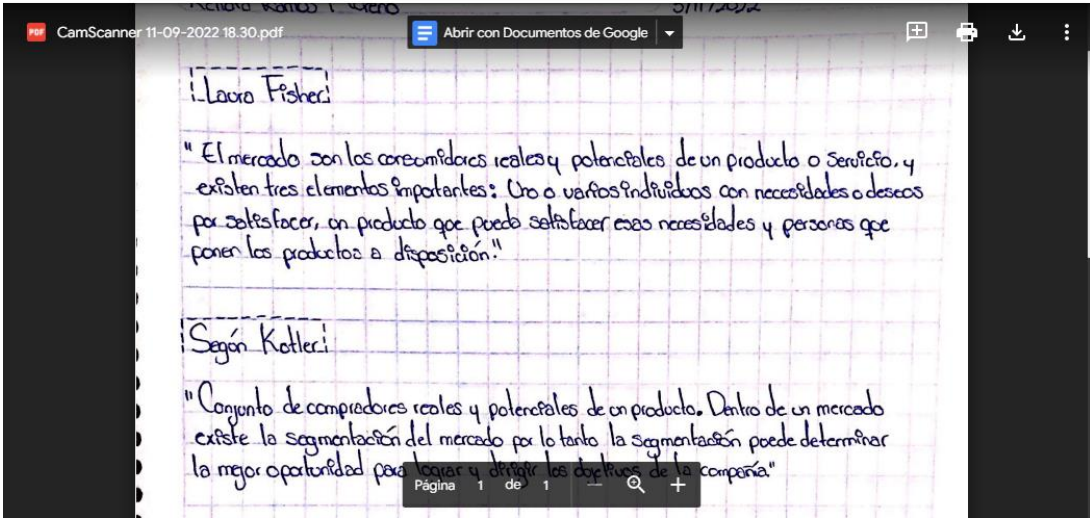 5/11/2022
CamScanner 11-09-2022 18.30.pdf
Abrir con Documentos de Google
Laura Fisher:
"El mercado son los consumidores reales y potenciales de un producto o servicio, y
existen tres elementos importantes: Uno o varios individuos con necesidades o deseos
por satisfacer, un producto que pueda satisfacer esas necesidades y personas que
ponen los productos a disposición."
Según Kotler:
"Conjunto de compradores reales y potenciales de un producto. Dentro de un mercado
existe la segmentación del mercado por lo tanto la segmentación puede determinar
la mejor oportunidad para lograr y dirigir los objetivos de la compañía."
Página 1 de 1